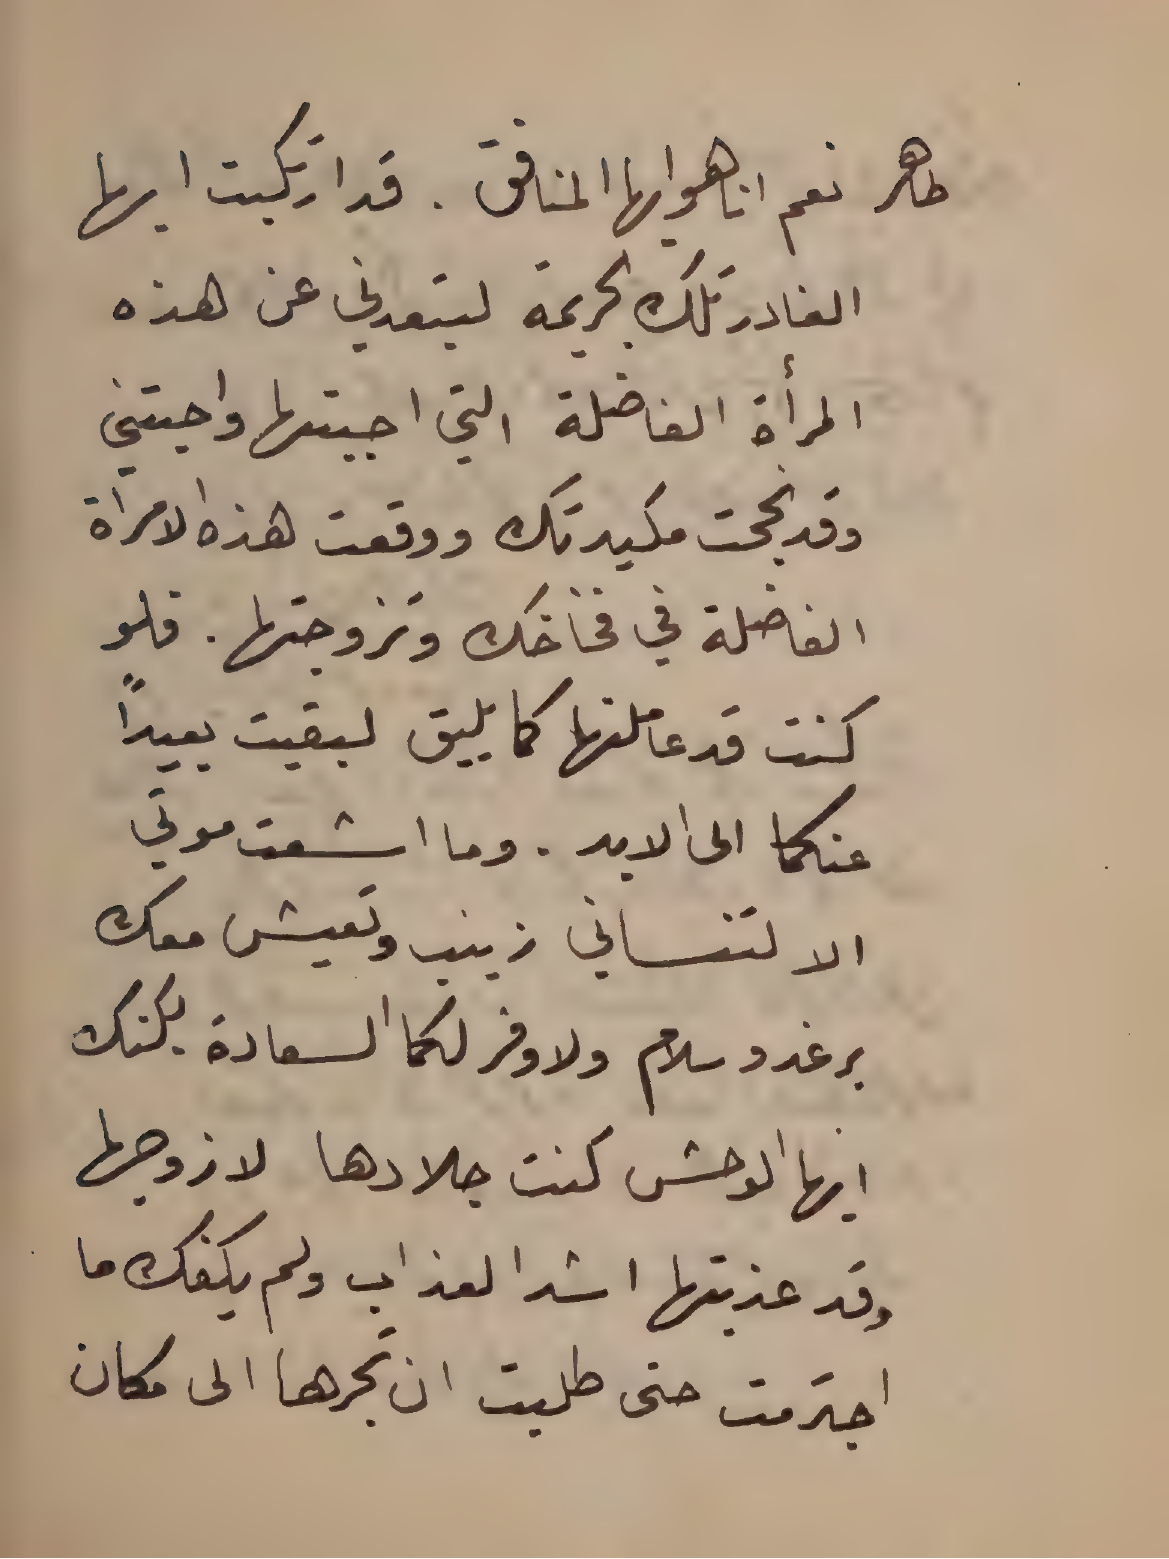 طاهر نعم انا هو ايها المنافق . قد ارتكبت ايها
الغادر تلك الجريمة لتبعدني عن هذه
المرأة الفاضلة التي احببتها واحبتني
وقد نجحت مكيدتك ووقعت هذه الامرأة
الفاضلة في فخاخك وتزوجتها . فلو
كنت قد عاملتها كما يليق لبقيت بعيداً
عنكما الى الابد . وما اشعت موتي
الا لتنساني زينب وتعيش معك
برغد وسلام ولاوفر لكما السعادة لكنك
ايها الوحش كنت جلادها لا زوجها
وقد عذبتها اشد العذاب ولم يكفك ما
اجترمت حتى طلبت ان تجرها الى مكان